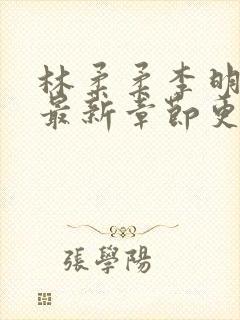 林柔柔李明
最新章節更
張學陽